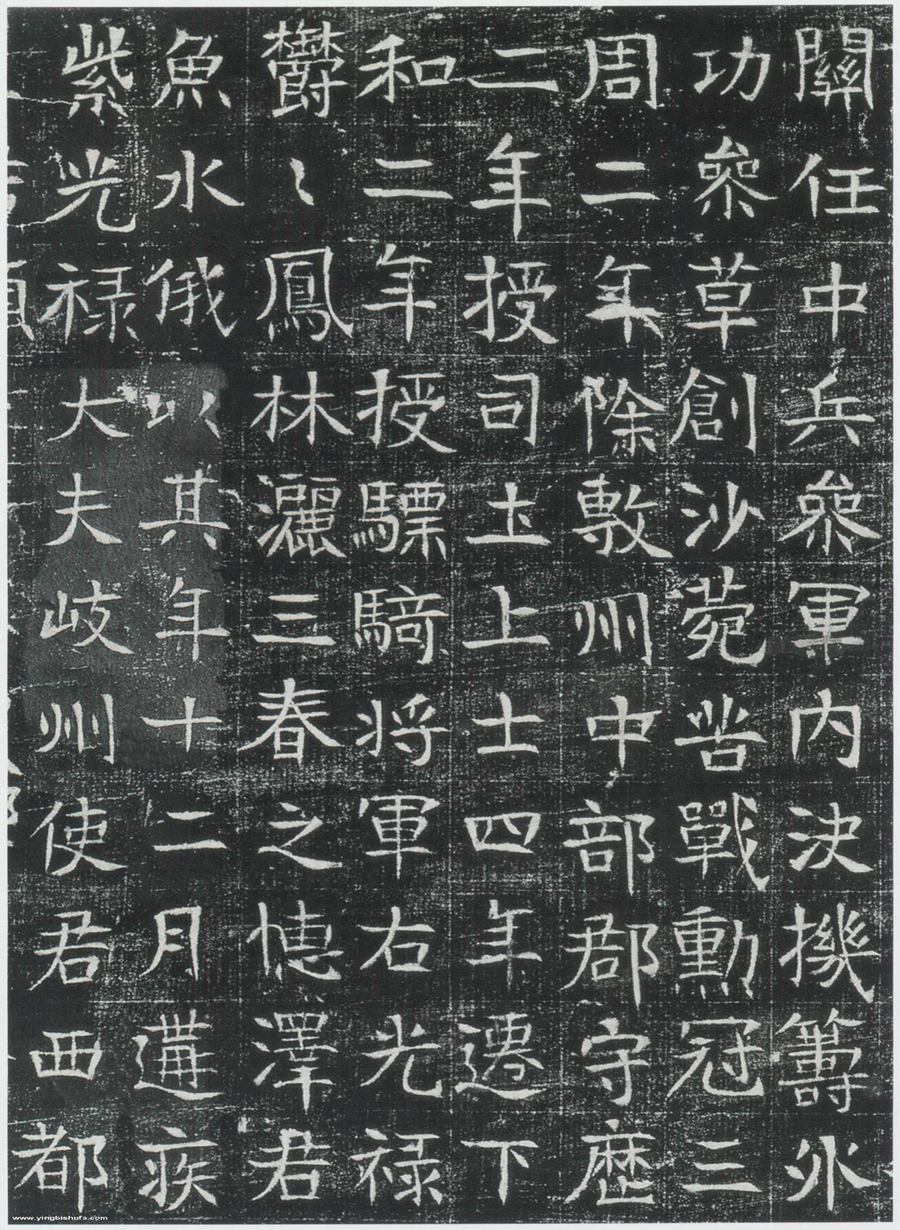 關任中兵參軍內決機籌外
功參草創沙菀苦戰勳冠三
周二年除敷州中部郡守歷
二年授司土上士四年遷下
和二年授驃騎将軍右光禄
鬱〻鳳林灑三春之憓澤君
魚水俄以其年十二月遘疾
紫光禄大夫岐州使君西都
www.yingbishufa.com